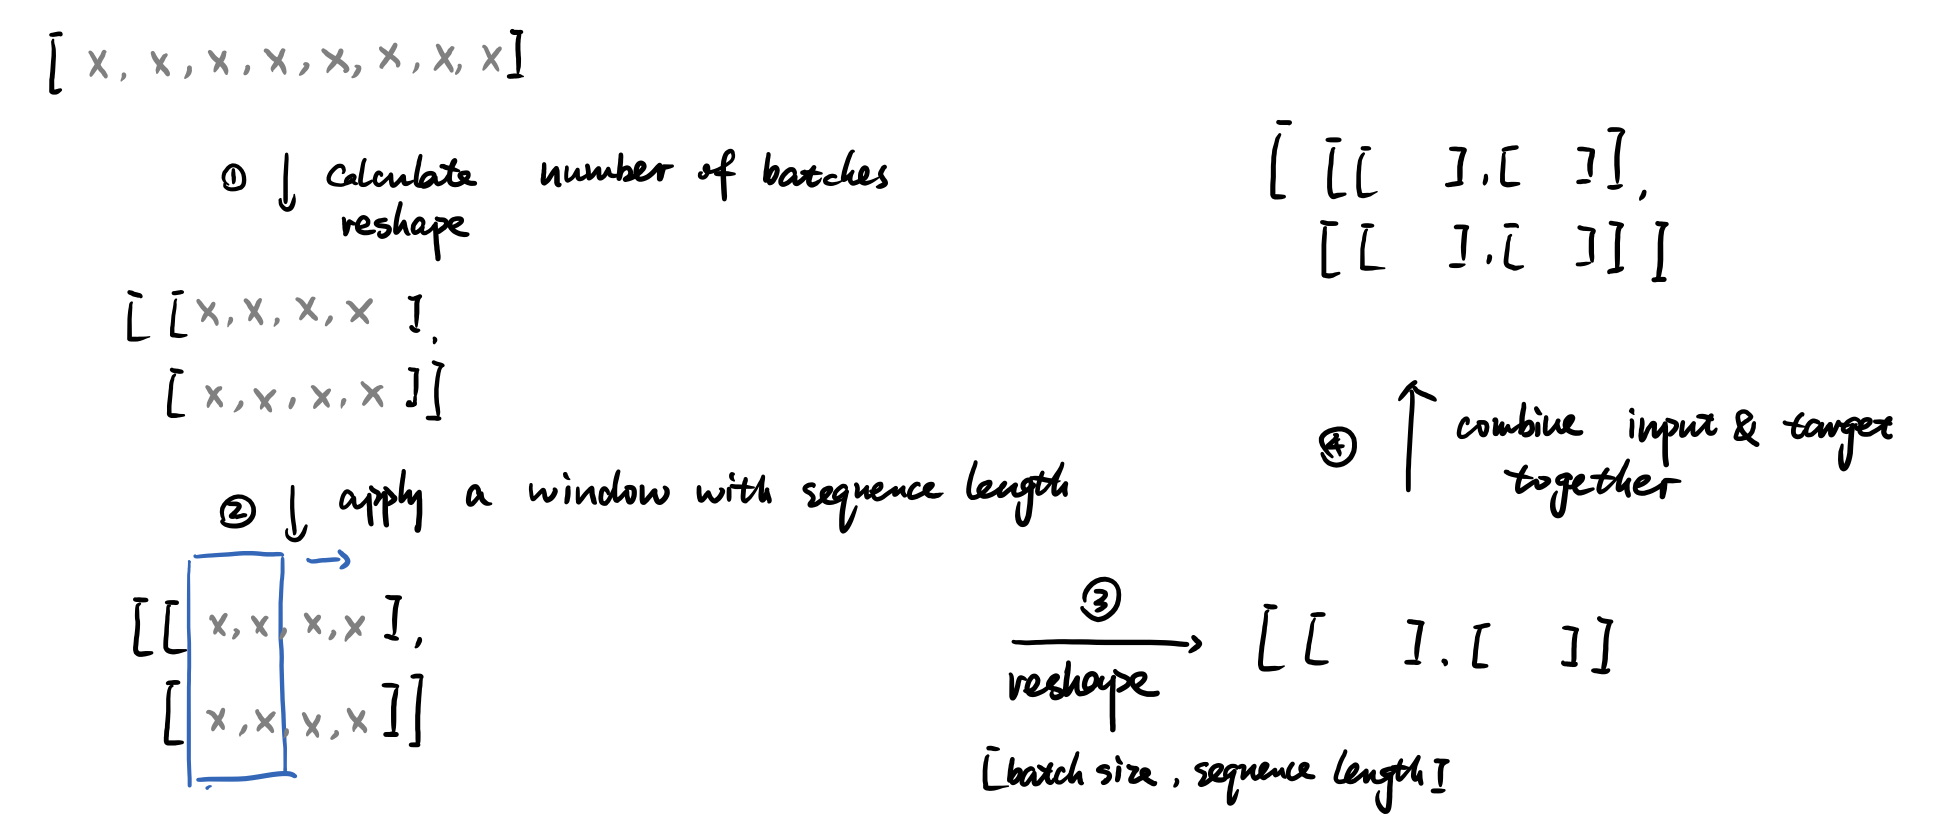 [ x, x, x, x, x, x, x, x ]
① ↓ calculate number of batches
reshape
[ [ x, x, x, x ],
[ x, x, x, x ] ]
② ↓ apply a window with sequence length
→
[ [ x, x, x, x ],
[ x, x, x, x ] ]
③
→
reshape
[batch size, sequence length]
[ [ ], [ ] ]
④ ↑ combine input & target
together
[ [ [ ], [ ] ],
[ [ ], [ ] ] ]